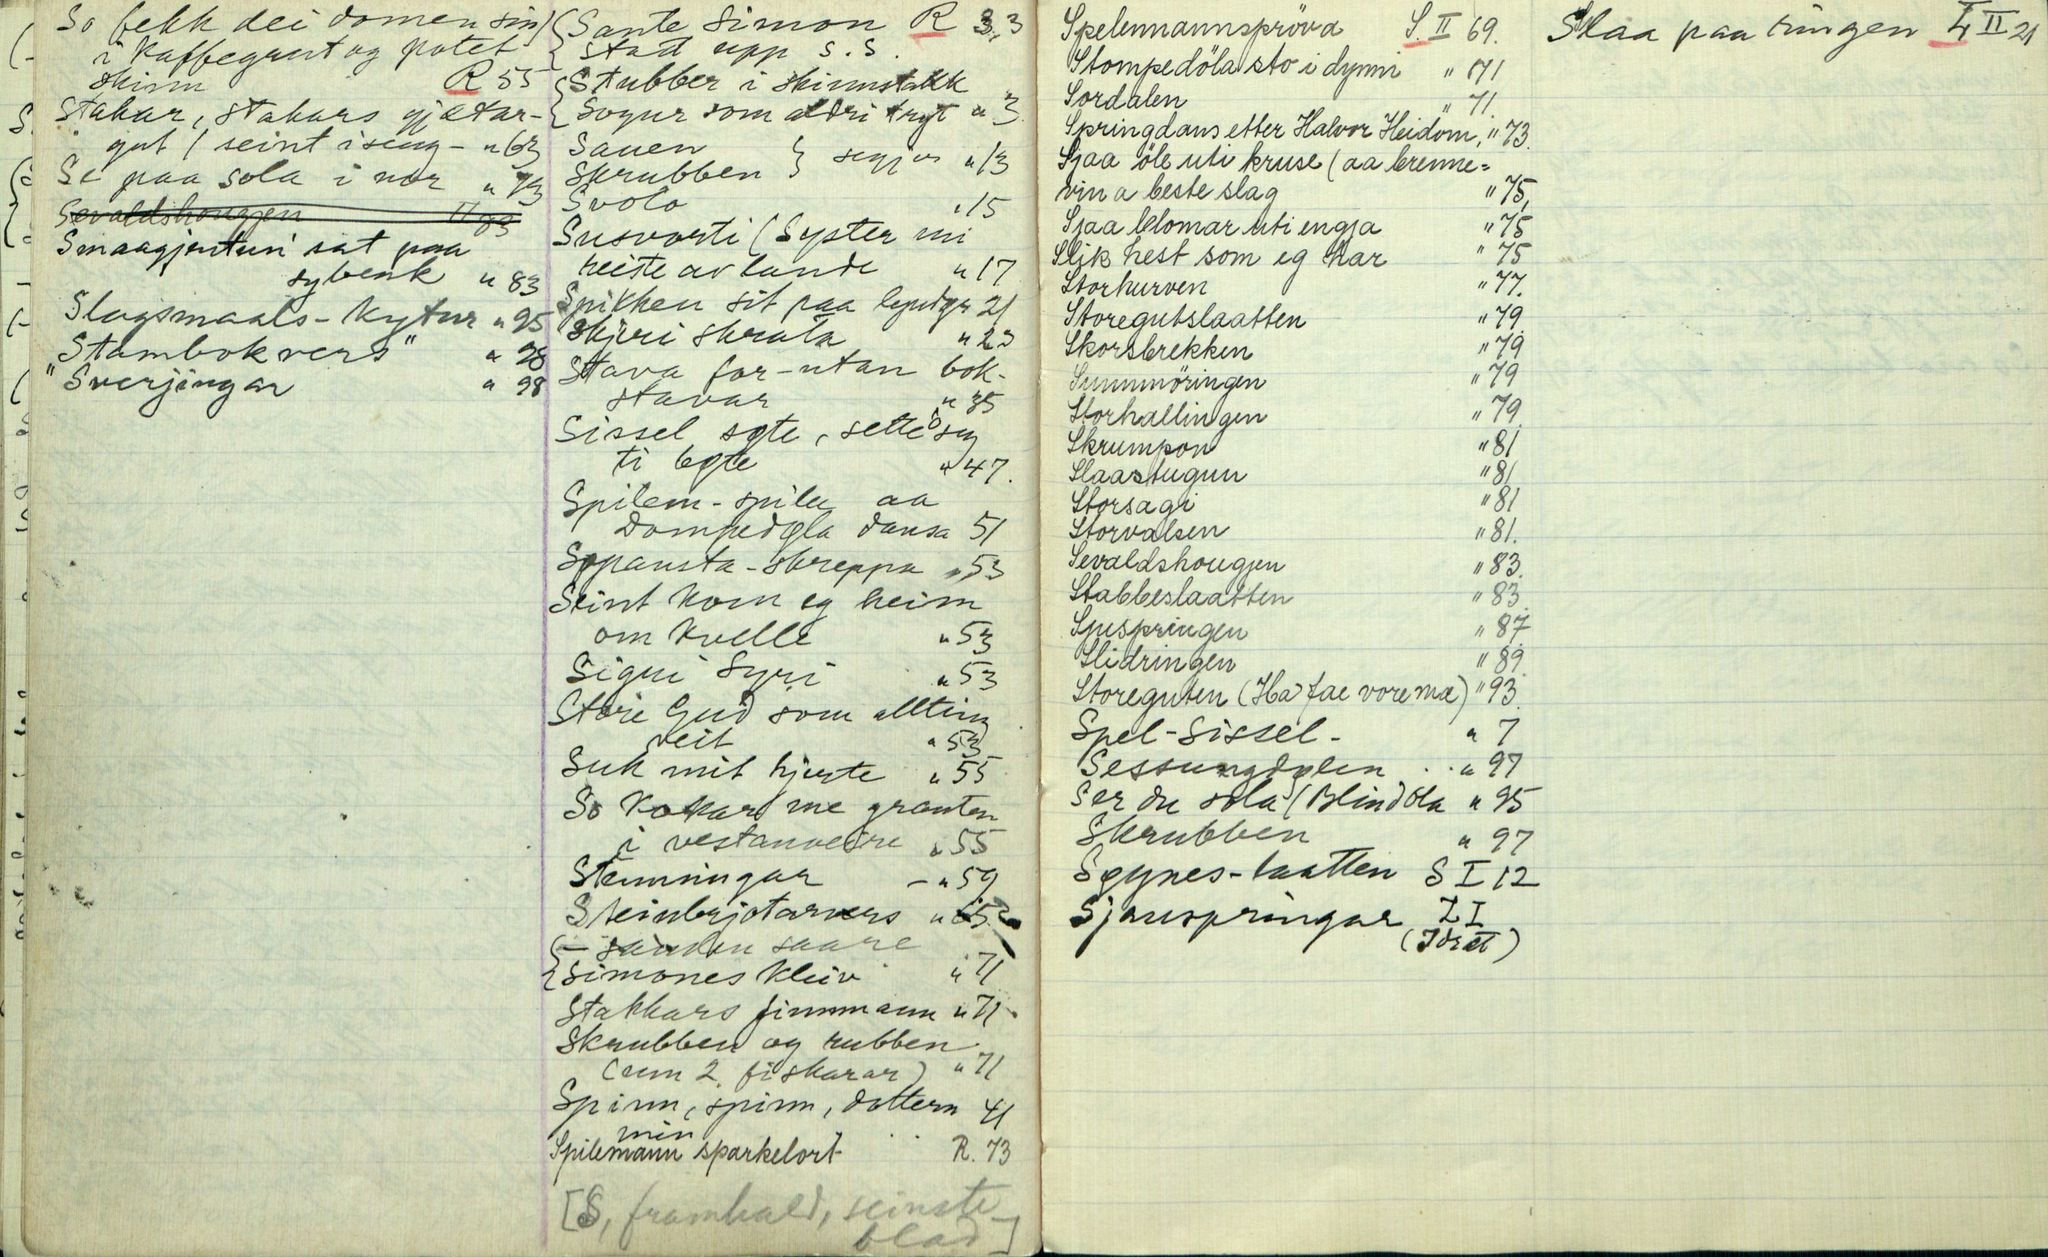 So fekk dei domen sin
i kaffegrut og potet
skinn R 55
Stakar, stakars gjætar-
gut / seint i seng - " 63
Se paa sola i nor " 73
Sevaldshougjen " 83
Smaagjentun sat paa
sybenk " 83
Slagsmaals-kytur " 95
"Stambokvers" " 98
Sverjingar " 98
Sante Simon R 3,3
Statt upp s. s.
Stubber i skinnstakk
Sogur som aldri tryt " 3
Sauen
Skrubben } segjer " 13
Svolo " 15
Susvorti (Syster mi
reiste av lande " 17
sit paa 21
Skjeri skrata " 23
Stava for-utan bok-
stavar " 35
Sissel søte, sette seg
ti løte " 47.
Spilem-spila aa
Dompedøla dansa 51
Sopausta-skreppa " 53
Seint kom eg heim
om kvelle " 53
Sigri Syri " 53
Store Gud som allting
veit " 53
Suk mit hjerte " 55
So kokar me grauten
i vestanveire " 55
Stemningar - " 59
Steinbrjotarvers "
saare
Simones kleiv " 71
Stakkars finnmann " 71
Skrubben og rubben
(um 2 fiskarar) " 71
Spinn, spinn, dottern 41
min
Spilemann sparkelort R. 73
[S, framhald, seinste
blad]
Spelemannsprøva S. II 69.
Stompedöla sto i dynni " 71
Sordalen " 71.
Springdans etter Halvor Heidom, " 73.
Sjaa öle uti kruse (aa brenne=
vin a beste slag " 75,
Sjaa blomar uti engja " 75
Slik hest som eg har " 75
Storhurven " 77.
Storegutslaatten " 79.
Skorsbrekken " 79
Sunnmöringen " 79
Storhallingen " 79.
Skrumpon " 81
Slaastugun " 81
Storsagi " 81
Storvalsen " 81.
Sevaldshougjen " 83.
Stabbeslaatten " 83.
Sjuspringen " 87
Slidringen " 89.
Storeguten (Ha fae vore mæ) " 93.
Spel-Sissel- " 7
Sessungdølen " 97
Ser du sola (Blindöla " 95
Skrubben " 97
S I 12
Sjauspringar I I
(Idræt)
Slaa paa ringen L II 21